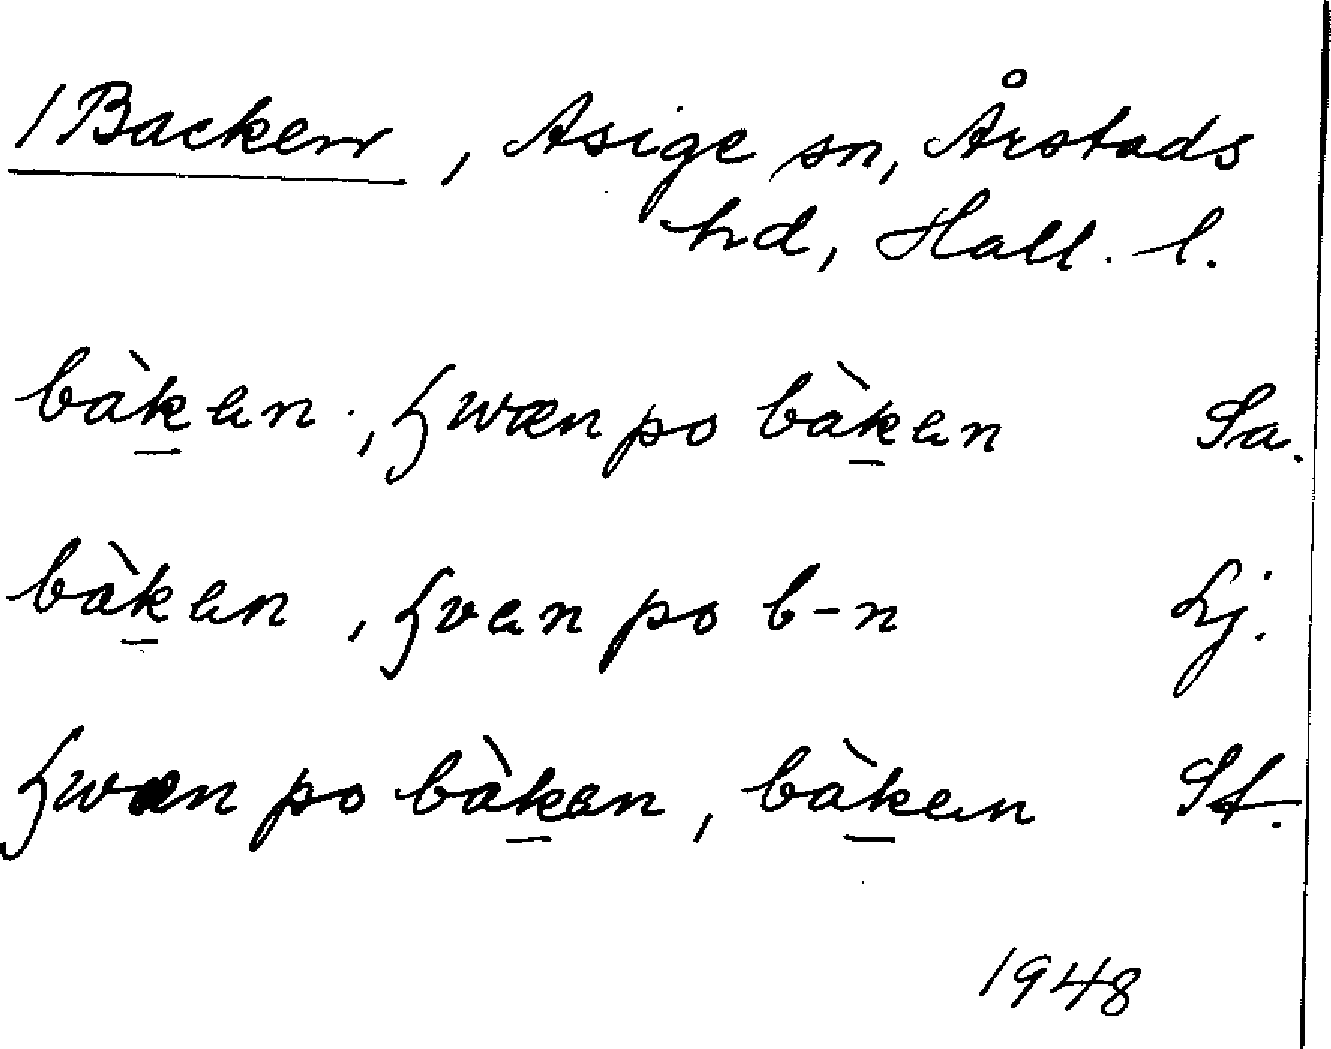 /Backen, Asige sn, Årstads
hd, Hall. l.
bàk̲en, ʒwæn po bàk̲en Sa.
bàk̲en, ʒven po b-n Lj.
ʒwæn po bàk̲en, bàk̲en St.
1948